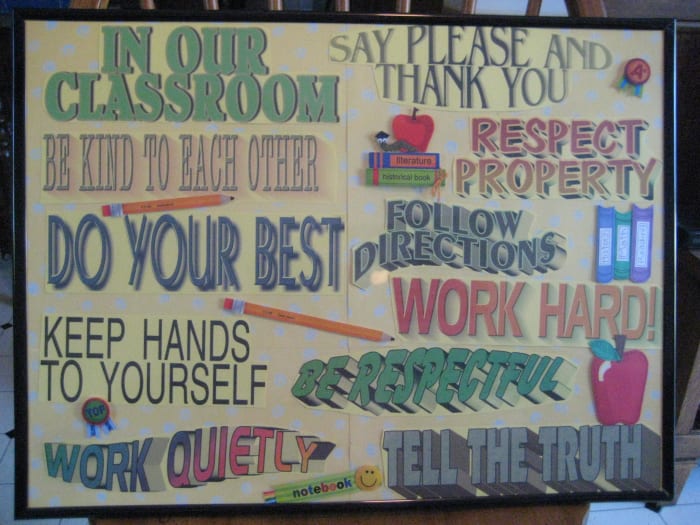 IN OUR
CLASSROOM
BE KIND TO EACH OTHER
DO YOUR BEST
KEEP HANDS
TO YOURSELF
TOP
WORK QUIETLY
notebook
SAY PLEASE AND
THANK YOU
A+
literature
historical book
RESPECT
PROPERTY
FOLLOW
DIRECTIONS
WORK HARD!
BE RESPECTFUL
TELL THE TRUTH